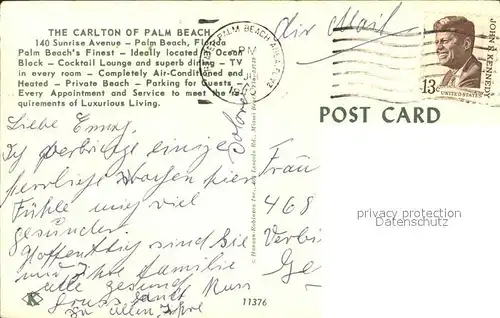 THE CARLTON OF PALM BEACH
140 Sunrise Avenue — Palm Beach, Florida
Palm Beach's Finest — Ideally located — Ocean
Block — Cocktail Lounge and superb dining — TV
in every room — Completely Air-Conditioned and
Heated — Private Beach — Parking for Guests —
Every Appointment and Service to meet the
quirements of Luxurious Living.
Air Mail
WEST PALM BEACH
PM
JOHN F. KENNEDY
13c
UNITED STATES
POST CARD
Liebe
Ich verbringe einige
herrliche Wochen hier
Fühle mich viel
gesünder.
Hoffentlich sind Sie
und Ihre Familie
alle gesund
Gruss
zu allen
Frau
468
Verbi
Ge-
privacy protection
Datenschutz
K
11376